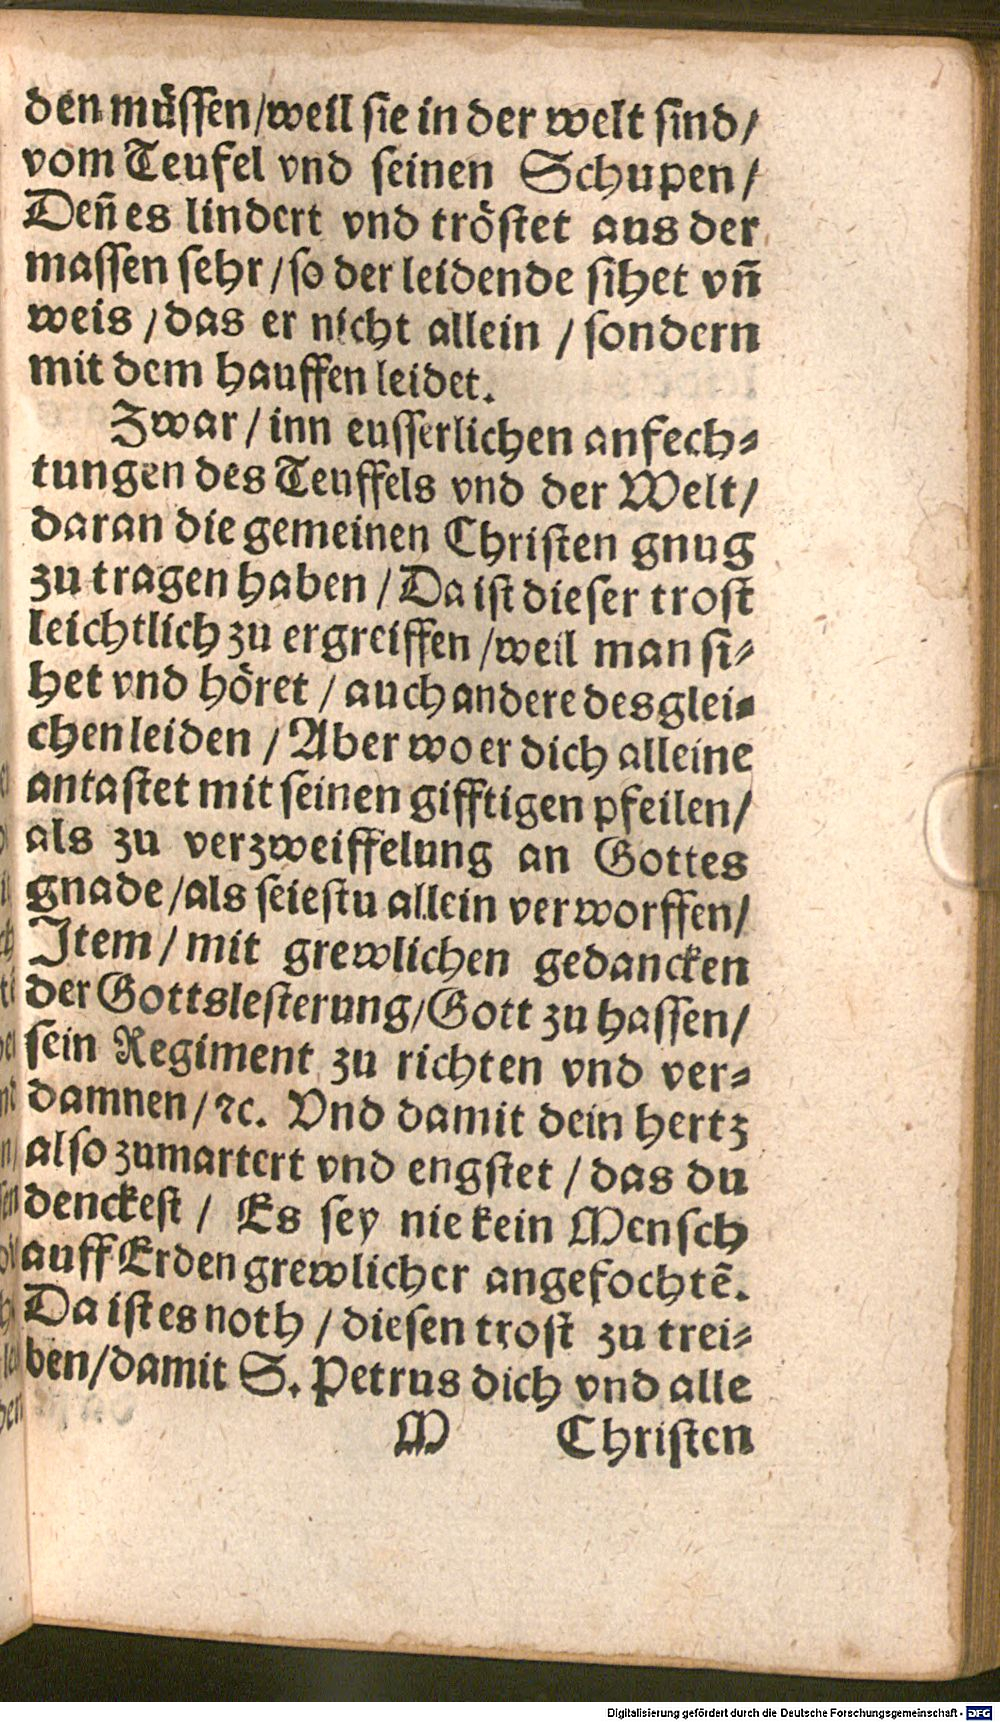 den müſſen/weil ſie in der welt ſind/
vom Teufel vnd ſeinen Schupen/
Deñ es lindert vnd tröſtet aus der
maſſen ſehr/ſo der leidende ſihet vñ
weis/das er nicht allein/ſondern
mit dem hauffen leidet.
Zwar/inn euſſerlichen anfech⸗
tungen des Teuffels vnd der Welt/
daran die gemeinen Chriſten gnug
zu tragen haben/Da iſt dieſer troſt
leichtlich zu ergreiffen/weil man ſi⸗
het vnd höret/auch andere desglei⸗
chen leiden/Aber wo er dich alleine
antaſtet mit ſeinen gifftigen pfeilen/
als zu verzweiffelung an Gottes
gnade/als ſeieſtu allein verworffen/
Item/mit grewlichen gedancken
der Gottsleſterung/Gott zu haſſen/
ſein Regiment zu richten vnd ver⸗
damnen/ꝛc. Vnd damit dein hertz
alſo zumartert vnd engſtet/das du
denckeſt/Es ſey nie kein Menſch
auff Erden grewlicher angefochtẽ.
Da iſt es noth/dieſen troſt zu trei⸗
ben/damit S. Petrus dich vnd alle
M Chriſten
Digitalisierung gefördert durch die Deutsche Forschungsgemeinschaft - DFG